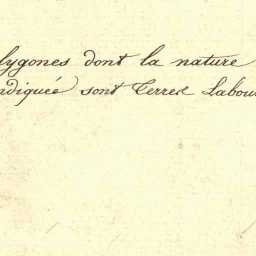 lygones dont la nature
ndiquée sont Terres Labou